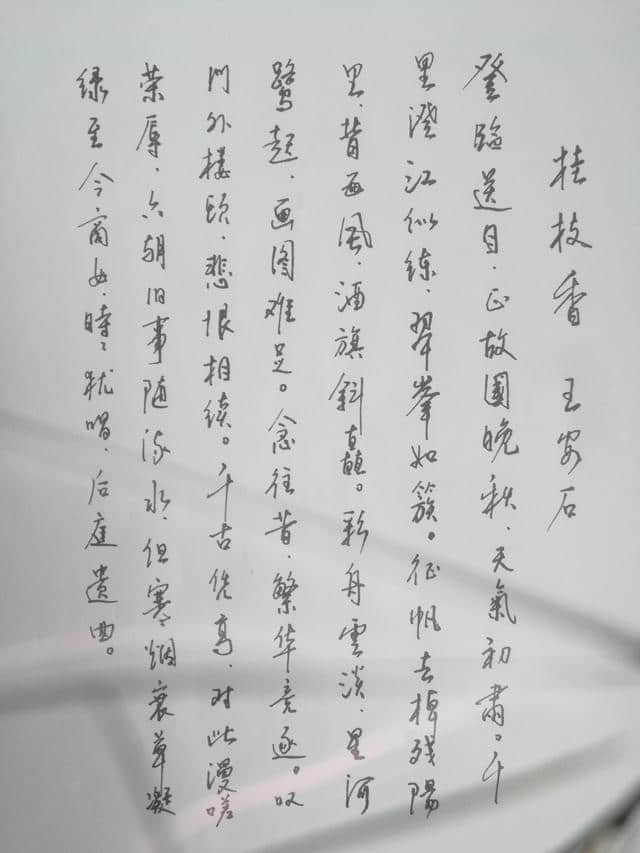 桂枝香 王安石
登臨送目、正故國晚秋、天氣初肅。千
里澄江似練、翠峯如簇。征帆去棹残陽
里、背西風、酒旗斜矗。彩舟雲淡、星河
鹭起、画图难足。念往昔、繁华竞逐。叹
门外楼头、悲恨相续。千古凭高、对此漫嗟
荣辱、六朝旧事随流水、但寒烟衰草凝
绿至今商女、時々犹唱、后庭遗曲。